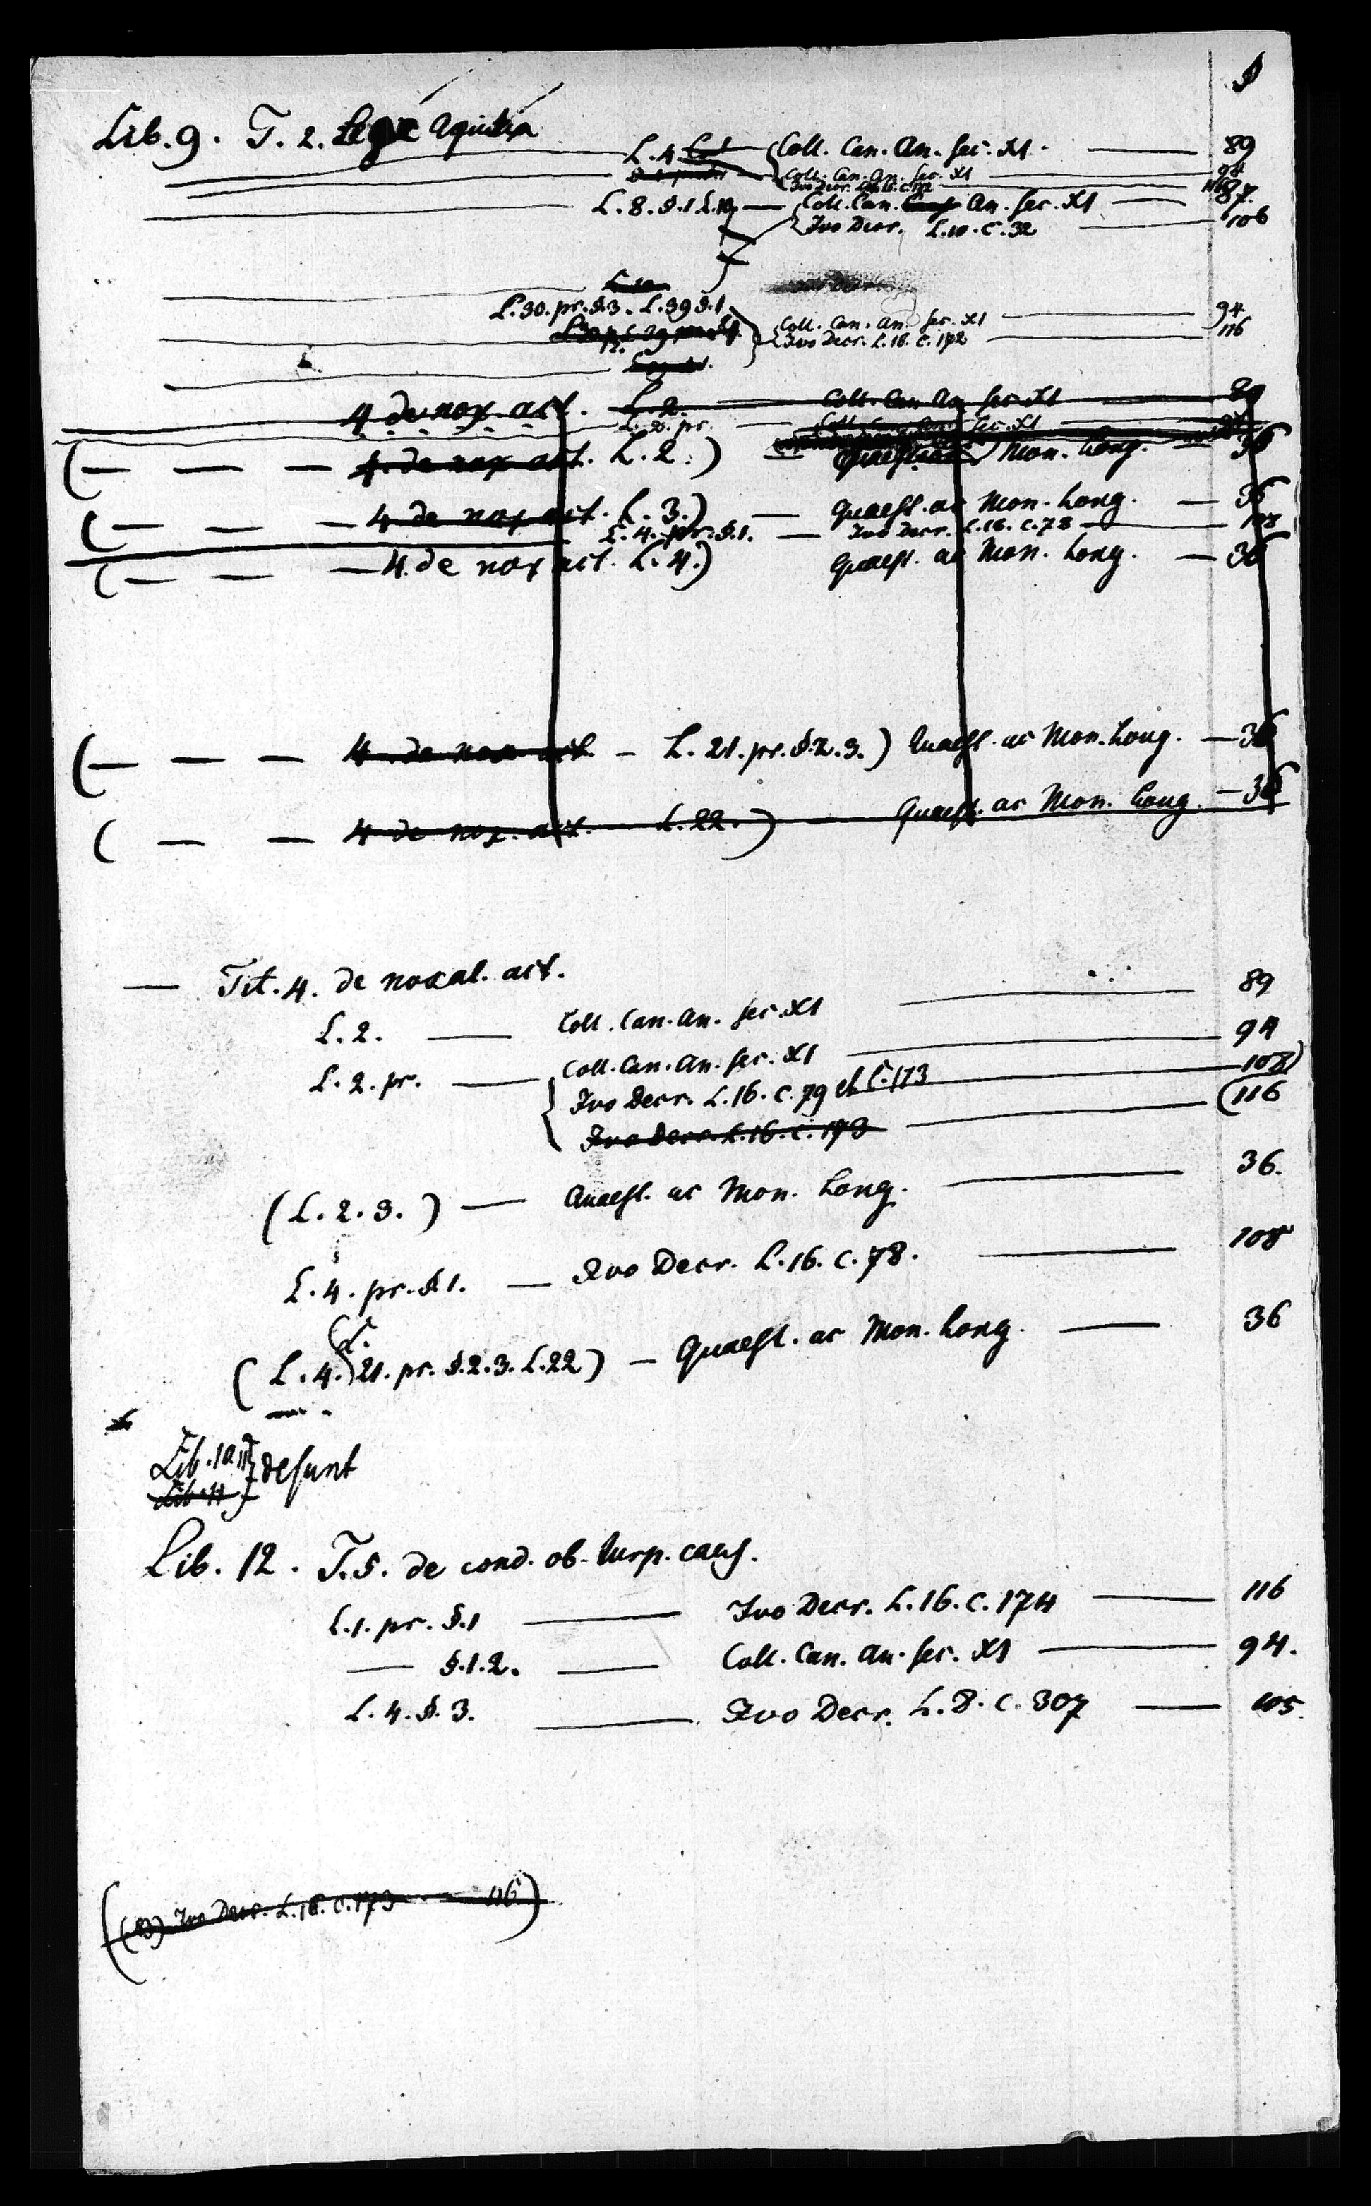 Lib. 9. T. 2. Lege Aquilia
L. 4. Coll. Can. An. sec. XI. — 89
Coll. Can. An. sec. XI — 94
L. 8. §. 1 L. 10 — Coll. Can. An. sec. XI — 87.
Ivo Decr. L. 10. C. 32 — 106
L. 30. pr. §. 3. L. 39 §. 1.
Coll. Can. An. sec. XI — 94
Ivo Decr. L. 16. C. 172 — 116
4 de nox. act. L. 2. Coll. Can. An sec. XI — 89
L. 2. pr. — Coll. Can. An. sec. XI
( — — — 4. de nox act. L. 2.) — Quaest. ac Mon. Long. — 36
( — — — 4 de nox act. L. 3.) — Quaest. ac Mon. Long. — 36
L. 4. pr. §. 1. — Ivo Decr. L. 16. C. 78 — 108
( — — — 4. de nox act. L. 4.) Quaest. ac Mon. Long. — 36
( — — — 4. de nox act. — L. 21. pr. §. 2. 3.) Quaest. ac Mon. Long. — 36
( — — 4 de nox. act. — L. 22.) — Quaest. ac Mon. Long. — 36
— Tit. 4. de noxal. act.
L. 2. — Coll. Can. An. sec. XI — 89
L. 2. pr. — Coll. Can. An. sec. XI — 94
Ivo Decr. L. 16. C. 79 et C. 173 — 108)
Ivo Decr. L. 16. C. 173 — (116
(L. 2. 3.) — Quaest. ac Mon. Long. — 36.
L. 4. pr. §. 1. — Ivo Decr. L. 16. C. 78. — 108
(L. 4. L. 21. pr. §. 2. 3. L. 22) — Quaest. ac Mon. Long. — 36
Lib. 10. 11 } desunt
Lib. 11
Lib. 12. T. 5. de cond. ob. turp. caus.
L. 1. pr. §. 1 — Ivo Decr. L. 16. C. 174 — 116
— §. 1. 2. — Coll. Can. An. sec. XI — 94.
L. 4. §. 3. — Ivo Decr. L. 8. C. 307 — 105.
Ivo Decr. L. 16. C. 173 — 116)